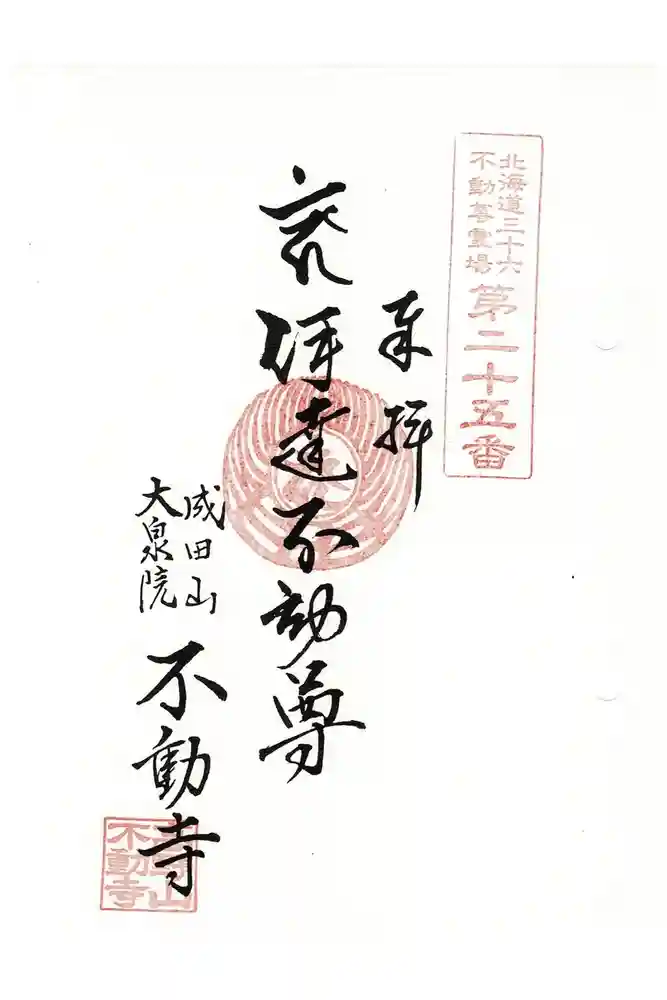 北海道三十六
不動尊霊場
第二十五番
奉拝
伊達不動尊
成田山
大泉院
不動寺
不動寺